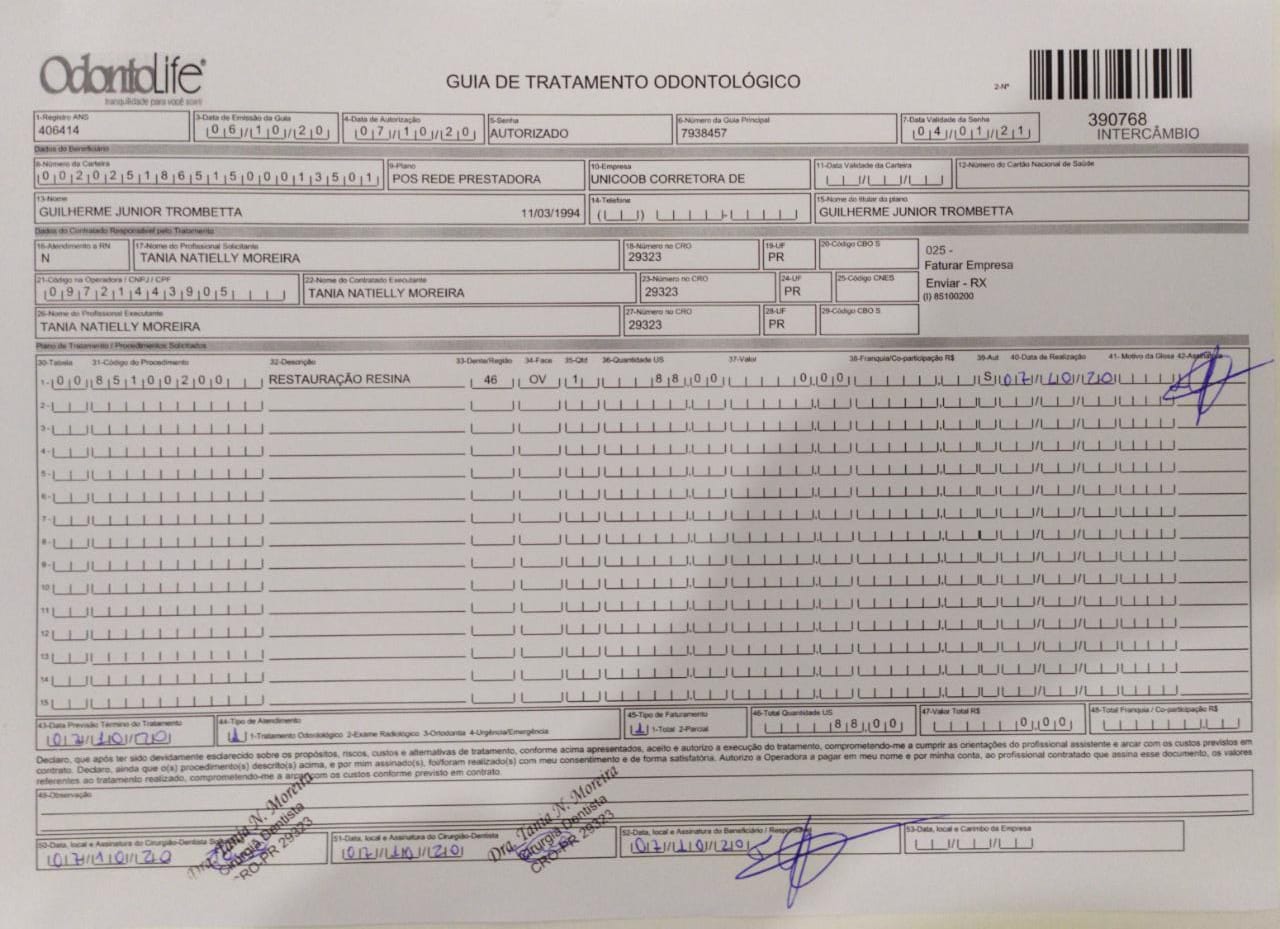 OdontoLife®
tranquilidade para você sorrir
GUIA DE TRATAMENTO ODONTOLÓGICO
2-Nº
390768
INTERCÂMBIO
1-Registro ANS
406414
3-Data de Emissão da Guia
06/10/20
4-Data de Autorização
07/10/20
5-Senha
AUTORIZADO
6-Número da Guia Principal
7938457
7-Data Validade da Senha
04/01/21
Dados do Beneficiário
8-Número da Carteira
00202518651500013501
9-Plano
POS REDE PRESTADORA
10-Empresa
UNICOOB CORRETORA DE
11-Data Validade da Carteira
12-Número do Cartão Nacional de Saúde
13-Nome
GUILHERME JUNIOR TROMBETTA 11/03/1994
14-Telefone
15-Nome do titular do plano
GUILHERME JUNIOR TROMBETTA
Dados do Contratado Responsável pelo Tratamento
16-Atendimento a RN
N
17-Nome do Profissional Solicitante
TANIA NATIELLY MOREIRA
18-Número no CRO
29323
19-UF
PR
20-Código CBO S
025 -
Faturar Empresa
Enviar - RX
(I) 85100200
21-Código na Operadora / CNPJ / CPF
09721443905
22-Nome do Contratado Executante
TANIA NATIELLY MOREIRA
23-Número no CRO
29323
24-UF
PR
25-Código CNES
26-Nome do Profissional Executante
TANIA NATIELLY MOREIRA
27-Número no CRO
29323
28-UF
PR
29-Código CBO S
Plano de Tratamento / Procedimentos Solicitados
30-Tabela 31-Código do Procedimento 32-Descrição 33-Dente/Região 34-Face 35-Qtd 36-Quantidade US 37-Valor 38-Franquia/Co-participação R$ 39-Aut 40-Data de Realização 41- Motivo da Glosa 42-Assinatura
1- 00 85100200 RESTAURAÇÃO RESINA 46 OV 1 88,00 0,00 S 07/10/20
2-
3-
4-
5-
6-
7-
8-
9-
10
11
12
13
14
15
43-Data Previsão Término do Tratamento
07/10/20
44-Tipo de Atendimento
1 1-Tratamento Odontológico 2-Exame Radiológico 3-Ortodontia 4-Urgência/Emergência
45-Tipo de Faturamento
1 1-Total 2-Parcial
46-Total Quantidade US
88,00
47-Valor Total R$
0,00
48-Total Franquia / Co-participação R$
Declaro, que após ter sido devidamente esclarecido sobre os propósitos, riscos, custos e alternativas de tratamento, conforme acima apresentados, aceito e autorizo a execução do tratamento, comprometendo-me a cumprir as orientações do profissional assistente e arcar com os custos previstos em
contrato. Declaro, ainda que o(s) procedimento(s) descrito(s) acima, e por mim assinado(s), foi/foram realizado(s) com meu consentimento e de forma satisfatória. Autorizo a Operadora a pagar em meu nome e por minha conta, ao profissional contratado que assina esse documento, os valores
referentes ao tratamento realizado, comprometendo-me a arcar com os custos conforme previsto em contrato.
49-Observação
50-Data, local e Assinatura do Cirurgião-Dentista
07/10/20
Dra. Tania N. Moreira
Cirurgiã Dentista
CRO-PR 29323
51-Data, local e Assinatura do Cirurgião-Dentista
07/10/20
Dra. Tania N. Moreira
Cirurgiã Dentista
CRO-PR 29323
52-Data, local e Assinatura do Beneficiário / Responsável
07/10/20
53-Data, local e Carimbo da Empresa